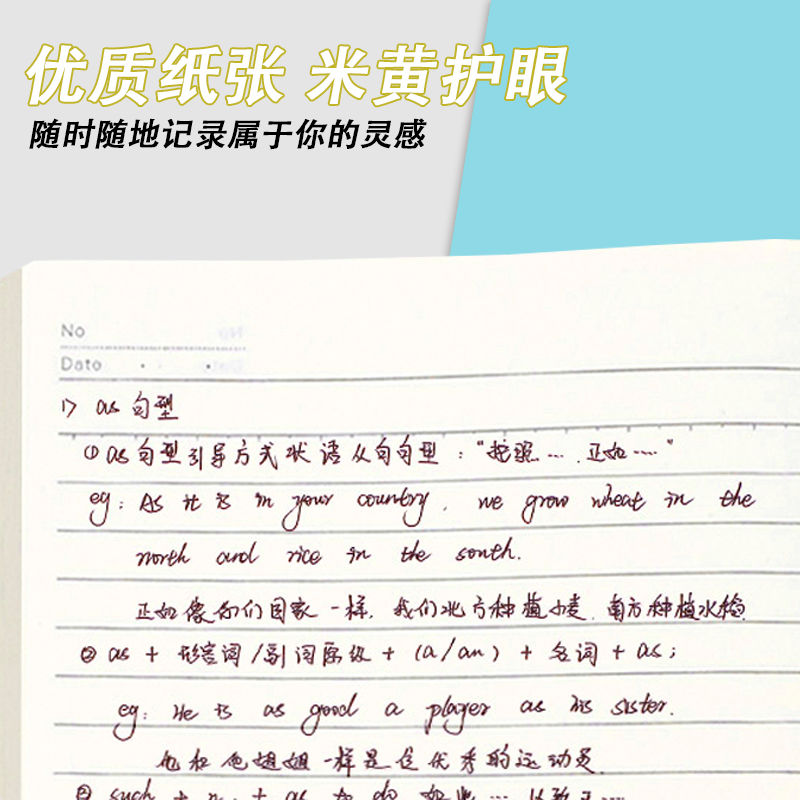 优质纸张 米黄护眼
随时随地记录属于你的灵感
No
Date
1> as 句型
① as句型引导方式状语从句句型：“按照…. 正如….”
eg: As it is in your country, we grow wheat in the
north and rice in the south.
正如像你们国家一样，我们北方种植小麦，南方种植水稻
② as + 形容词/副词原级 + (a/an) + 名词 + as;
eg: He is as good a player as his sister.
他和他姐姐一样是位优秀的运动员
such + n. + as to do